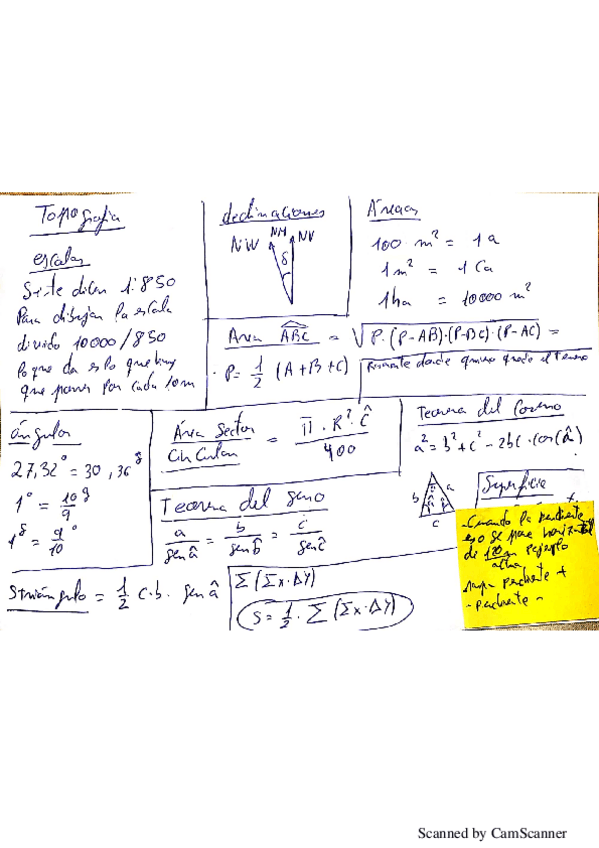 Topografia
escalas
Si te dicen 1:850
Para dibujar la escala
divido 10000/850
lo que da es lo que hay
que poner por cada 10m
declinaciones
NW NM NV
δ
Áreas
100 m² = 1a
1 m² = 1 Ca
1ha = 10000 m²
Area ABC = √P·(P-AB)·(P-BC)·(P-AC) =
· P = 1/2 (A+B+C)
donde quiero el
ángulos
27,32° = 30,36g
1° = 10g/9
1g = 9°/10
Área Sector
Circular = π·R²·Ĉ/400
Teorema del Coseno
a² = b² + c² - 2bc · cos(â)
Teorema del Seno
a/sen â = b/sen b̂ = c/sen ĉ
b a
c
Superficie
Striángulo = 1/2 c·b· sen â
Σ(Σx·Δy)
S = 1/2 · Σ(Σx·Δy)
- Cuando la pendiente
es 0 se pone horizontal
de 180m ejemplo
pendiente +
- pendiente -
Scanned by CamScanner